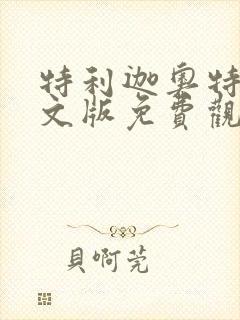 特利迦奧特
文版免費觀
貝啊莞